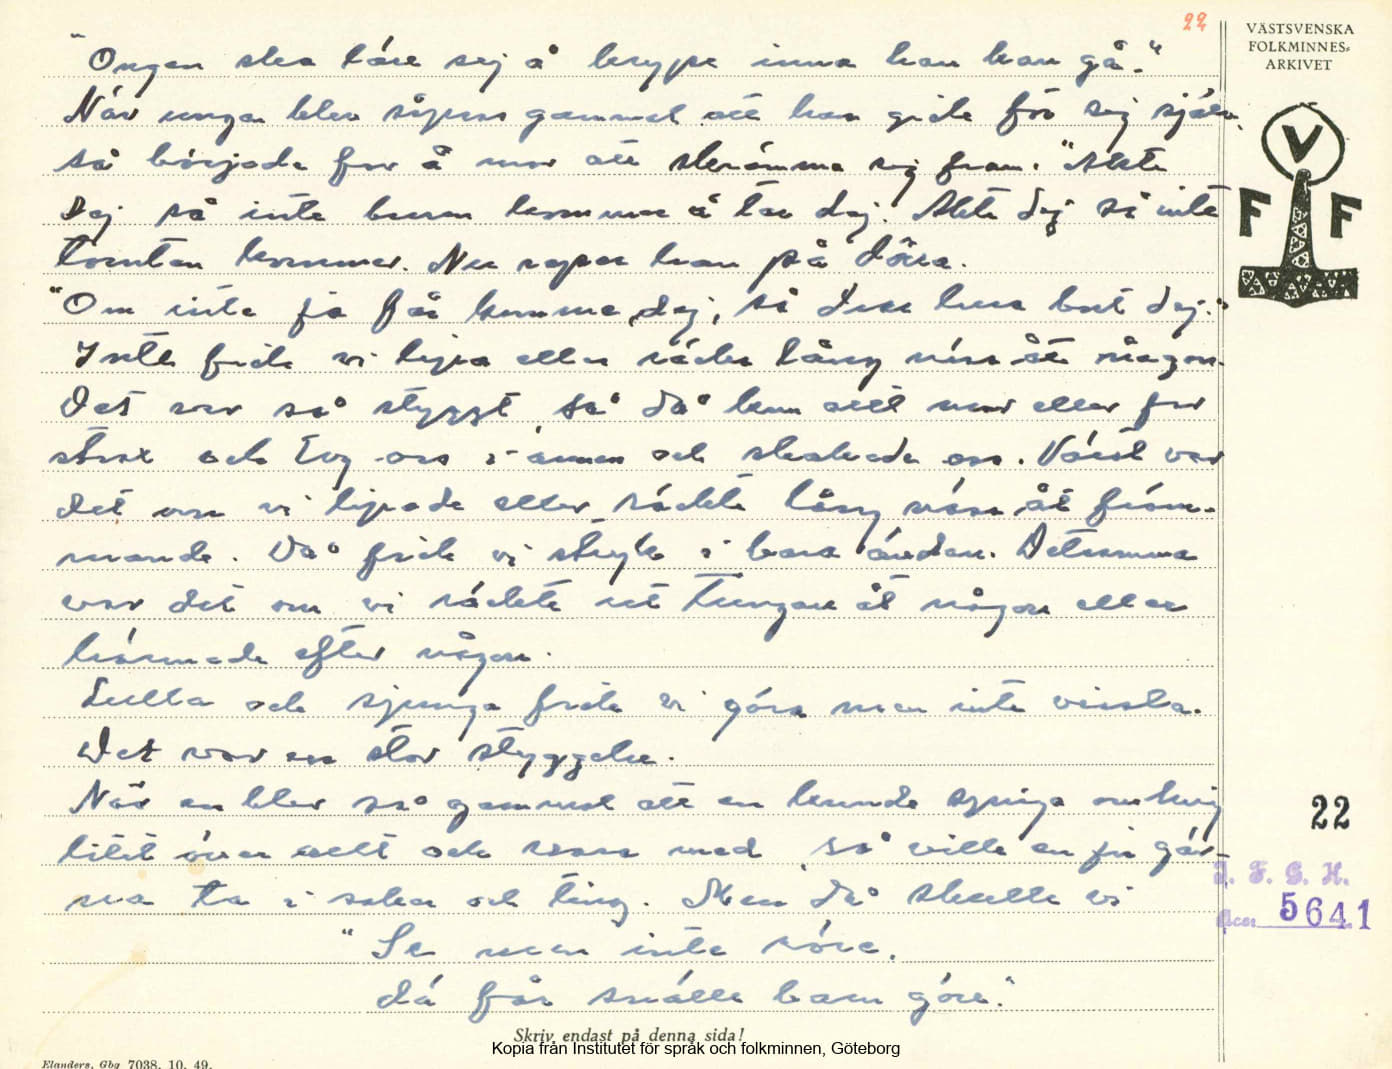 22
VÄSTSVENSKA
FOLKMINNES-
ARKIVET
"Ongen ska läre sej å krype inna han kan gå."
När ungen blev såpass gammal att han gick för sig själv,
så började far å mor att skrämma sig fram. "Akta
Dej så inte busen kommer å tar dej. Akta dej så inte
tomten kommer. Nu ropar han på döra.
"Om inte ja får komma dej, så ska hua bort dej."
Inte fick vi lipa eller räcka lång näsa åt någon.
Det var så styggt så då kom allt mor eller far
strax och tog oss i armen och skakade oss. Värst var
det om vi lipade eller räckte lång näsa åt främ-
mande. Då fick vi stryk i bara ändan. Detsamma
var det om vi räckte ut tungan åt någon eller
härmade efter någon.
Lulla och sjunga fick vi göra men inte vissla.
Det var en stor styggelse.
När en blev så gammal att en kunde springa omkring
litet över allt och vara med, så ville en ju gär-
na ta i saker och ting. Men då skulle vi
"Se men inte röre.
Dá får snälle barn göre."
V
F F
22
I. F. G. H.
Acc. 5641
Skriv endast på denna sida!
Kopia från Institutet för språk och folkminnen, Göteborg
Elanders, Gbg 7038. 10. 49.